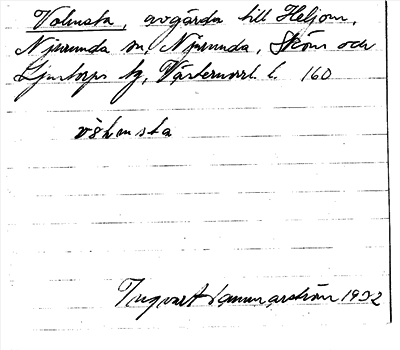 Volmsta, avgärda till Heljom,
Njurunda sn, Njurunda, Sköns och
Ljustorps tg, Västernorrl. l. 160
vålmsta
Ingvar Hammarström 1932